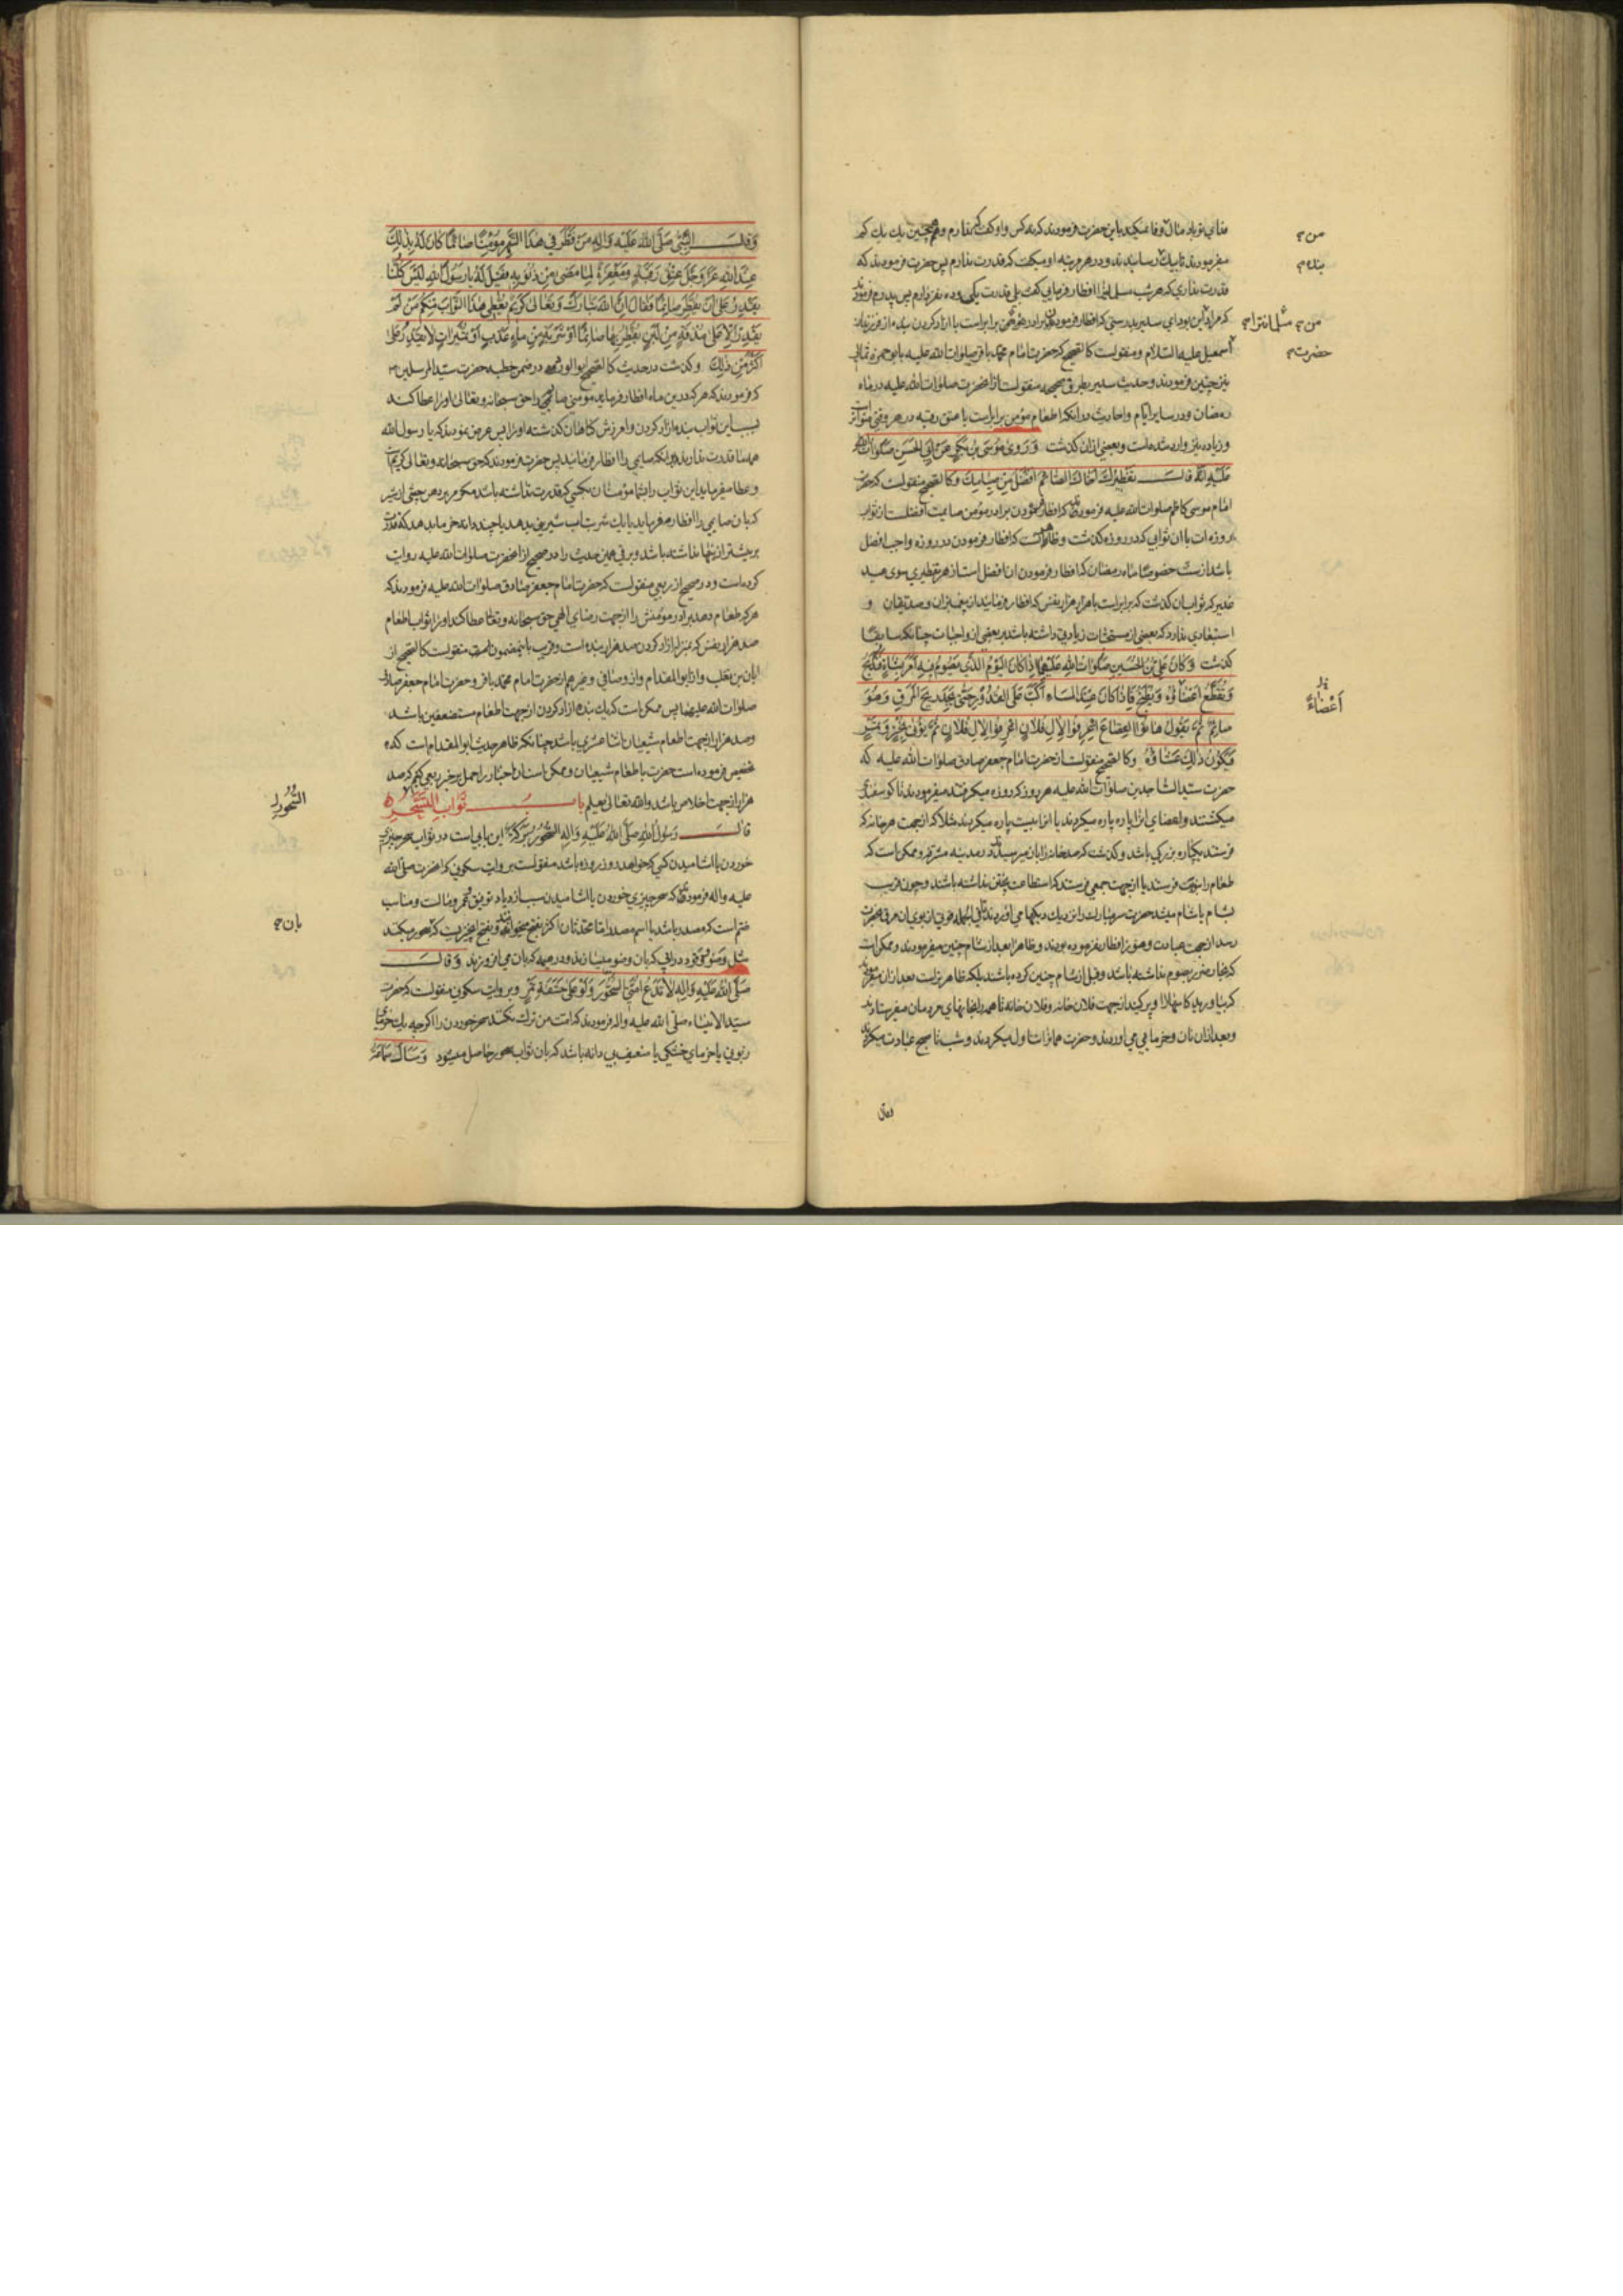 فدای تو باد مال من وفا نمیکند باین حضرت فرمودند که ده کس و او گفت که ندارم و همچنین یک یک کم
میفرمودند تا بیک رسانیدند و در هر مرتبه او میگفت که قدرت ندارم پس حضرت فرمودند که
قدرت نداری که هر شب مسلمانی را افطار فرمایی گفت بلی قدرت یکی و ده نفر دارم پس پدرم فرمودند
که مراد من این بود ای سدیر بدرستی که افطار فرمودن برادر مؤمن برابر است با ازاد کردن بنده از فرزندان
اسمعیل علیه السّلام و منقولست کالصّحیح که حضرت امام محمّد باقر صلوات الله علیه بابو حمزه ثمالی
نیز چنین فرمودند و حدیث سدیر بطریق صحیح منقولست از انحضرت صلوات الله علیه در ماه
رمضان و در سایر ایّام و احادیث در انکه اطعام مؤمن برابرست با عتق رقبه در هر وقتی متواتر است
و زیاده نیز وارد شده است و بعضی از ان گذشت وَ رَوی مُوسَی بْنُ بَکْرٍ عَنْ اَبِی الْحَسَنِ صَلَوَاتُ اللّٰهِ
عَلَیْهِ اَنَّهُ قَالَ تَفْطِیرُكَ اَخَاكَ الصَّائِمَ اَفْضَلُ مِنْ صِیَامِكَ و کالصّحیح منقولست که حضرت
امام موسی کاظم صلوات الله علیه فرمودند که افطار فرمودن برادر مؤمن صایمت افضلست از ثواب
روزه ات با ان ثوابی که در روزه گذشت و ظاهرا انست که افطار فرمودن در روزه واجب افضل
باشد از سنت خصوصا ماه رمضان که افطار فرمودن ان افضل است از هر تفطیری سوی عید
غدیر که ثواب ان گذشت که برابر است با هزار هزار نفس که افطار فرمایند از پیغمبران و صدیقان و
استبعادی ندارد که بعضی از مستحبّات زیادتی داشته باشد بر بعضی از واجبات چنانکه سابقا
گذشت وَ کَانَ عَلِیُّ بْنُ الْحُسَیْنِ صَلَوَاتُ اللّٰهِ عَلَیْهِمَا اِذَا کَانَ الْیَوْمُ الَّذِی یَصُومُ فِیهِ اَمَرَ بِشَاةٍ فَتُذْبَحُ
وَ تُقَطَّعُ اَعْضَاؤُهُ وَ تُطْبَخُ فَاِذَا کَانَ عِنْدَ الْمَسَاءِ اَکَبَّ عَلَی الْقُدُورِ حَتّٰی یَجِدَ رِیحَ الْمَرَقِ وَ هُوَ
صَائِمٌ ثُمَّ یَقُولُ هَاتُوا الْقِصَاعَ اغْرِفُوا لِاٰلِ فُلَانٍ اغْرِفُوا لِاٰلِ فُلَانٍ ثُمَّ یُؤْتٰی بِخُبْزٍ وَ تَمْرٍ
فَیَکُونُ ذٰلِكَ عَشَاؤُهُ و کالصّحیح منقولست از حضرت امام جعفر صادق صلوات الله علیه که
حضرت سیّد السّاجدین صلوات الله علیه هر روز که روزه میگرفتند میفرمودند تا گوسفندی
میکشتند و اعضای انرا پاره پاره میکردند یا انرا بیست پاره میکردند مثلا که از جهت هر خانه که
فرستند یکپاره بزرگی باشد و گذشت که صد خانه را نان میرسید در مدینه مشرفه و ممکن است که
طعام را نپخته فرستند یا از جهت جمعی فرستند که استطاعت پختن نداشته باشند و چون قریب
بشام یا شام میشد حضرت سر مبارک را نزدیک دیکها می اوردند تا فی الجمله قوتی از بوی ان مرق بحضرت
رسد از جهت عبادت و هنوز افطار نفرموده بودند و ظاهرا بعد از شام چنین میفرمودند و ممکن است
که بخار ضرر بصوم نداشته باشد و قبل از شام چنین کرده باشند بلکه ظاهرتر است بعد از ان میفرمودند
که بیاورید کاسهارا و پر کنید از جهت فلان خانه و فلان خانه تا همه را بخانهای مردمان میفرستادند
و بعد از ان نان و خرمایی می اوردند و حضرت همانرا تناول میکردند و شب تا صبح عبادت میکردند
من م
بنده م
من م مسلمانترا م
حضرت م
اَعْضَاءً
وقال
وَ قَالَ النَّبِیُّ صَلَّی اللّٰهُ عَلَیْهِ وَ اٰلِهِ مَنْ فَطَّرَ فِی هٰذَا الشَّهْرِ مُؤْمِنًا صَائِمًا کَانَ لَهُ بِذٰلِكَ
عِنْدَ اللّٰهِ عَزَّ وَ جَلَّ عِتْقُ رَقَبَةٍ وَ مَغْفِرَةٌ لِمَا مَضٰی مِنْ ذُنُوبِهِ فَقِیلَ لَهُ یَا رَسُولَ اللّٰهِ لَیْسَ کُلُّنَا
یَقْدِرُ عَلٰی اَنْ یُفَطِّرَ صَائِمًا فَقَالَ اِنَّ اللّٰهَ تَبَارَكَ وَ تَعَالٰی کَرِیمٌ یُعْطِی هٰذَا الثَّوَابَ مِنْکُمْ مَنْ لَمْ
یَقْدِرْ اِلَّا عَلٰی مَذْقَةٍ مِنْ لَبَنٍ یُفَطِّرُ بِهَا صَائِمًا اَوْ شَرْبَةٍ مِنْ مَاءٍ عَذْبٍ اَوْ تُمَیْرَاتٍ لَا یَقْدِرُ عَلٰی
اَکْثَرَ مِنْ ذٰلِكَ و گذشت در حدیث کالصّحیح ابو الورد در ضمن خطبه حضرت سیّد المرسلین ص
که فرمودند که هر که درین ماه افطار فرماید مؤمنی صایمی را حق سبحانه و تعالی او را عطا کند
بسبب این ثواب بنده ازاد کردن و امرزش گناهان گذشته او را پس عرض نمودند که یا رسول الله
همه ما قدرت نداریم بر انکه صایمی را افطار فرمائیم پس حضرت فرمودند که حق سبحانه و تعالی کریمست
و عطا میفرماید این ثواب را بشما مؤمنان بکسی که قدرت نداشته باشد مگر بر یدهن چشی از شیر
که بان صایمی را افطار میفرماید یا بیک شربت اب شیرینی بدهد یا چند دانه خرما بدهد که قدرت
بر بیشتر از اینها نداشته باشد و برقی همین حدیث را در صحیح از انحضرت صلوات الله علیه روایت
کرده است و در صحیح از ربعی منقولست که حضرت امام جعفر صادق صلوات الله علیه فرمودند که
هر که طعام دهد برادر مؤمنش را از جهت رضای الهی حق سبحانه و تعالی عطا کند او را ثواب اطعام
صد هزار نفس که بمنزله ازاد کردن صد هزار بنده است و قریب باین مضمون منقولست کالصّحیح از
ابان بن تغلب و از ابو المقدام و از وصافی و غیرهم از حضرت امام محمد باقر و حضرت امام جعفر صادق
صلوات الله علیهما پس ممکن است که یک بنده ازاد کردن از جهت اطعام مستضعفین باشد
و صد هزار از جهت اطعام شیعیان اثنا عشری باشد چنانکه ظاهر حدیث ابو المقدام است که
تخصیص فرموده است حضرت باطعام شیعیان و ممکن است ان اخبار را حمل بر خبر ربعی کنیم که صد
هزار از جهت اخلاص باشد و الله تعالی یعلم بابُ ثَوَابِ التَّسَحُّرِ
قَالَ رَسُولُ اللّٰهِ صَلَّی اللّٰهُ عَلَیْهِ وَ اٰلِهِ السَّحُورُ بَرَکَةٌ این بابی است در ثواب سحر چیزی
خوردن یا اشامیدن کسی که خواهد در روز روزه باشد منقولست بروایت سکونی که انحضرت صلّی الله
علیه و اله فرمودند که سحر چیزی خوردن یا اشامیدن سبب ازدیاد توفیق و عمر و مالست و مناسب
ضمّ است که مصدر باشد یا اسم مصدر امّا محدّثان اکثر بفتح میخوانند و بفتح انچیزیست که سحور میکنند
مثل وَضُو و وَقود در ابی که بان وضو میسازند و در هیمه که بان می افروزند وَ قَالَ
صَلَّی اللّٰهُ عَلَیْهِ وَ اٰلِهِ لَا تَدَعْ اُمَّتِی السَّحُورَ وَ لَوْ عَلٰی حَشَفَةِ تَمْرٍ و بروایت سکونی منقولست که حضرت
سیّد الانبیاء صلّی الله علیه و اله فرمودند که امّت من ترک نکنند سحر خوردن را اگرچه بیک خرمای
زبونی یا خرمای خشکی یا ضعیف بی دانه باشد که بان ثواب سحور حاصل میشود وَ سَاَلَ سَمَاعَةُ
السَّحُور
بان م